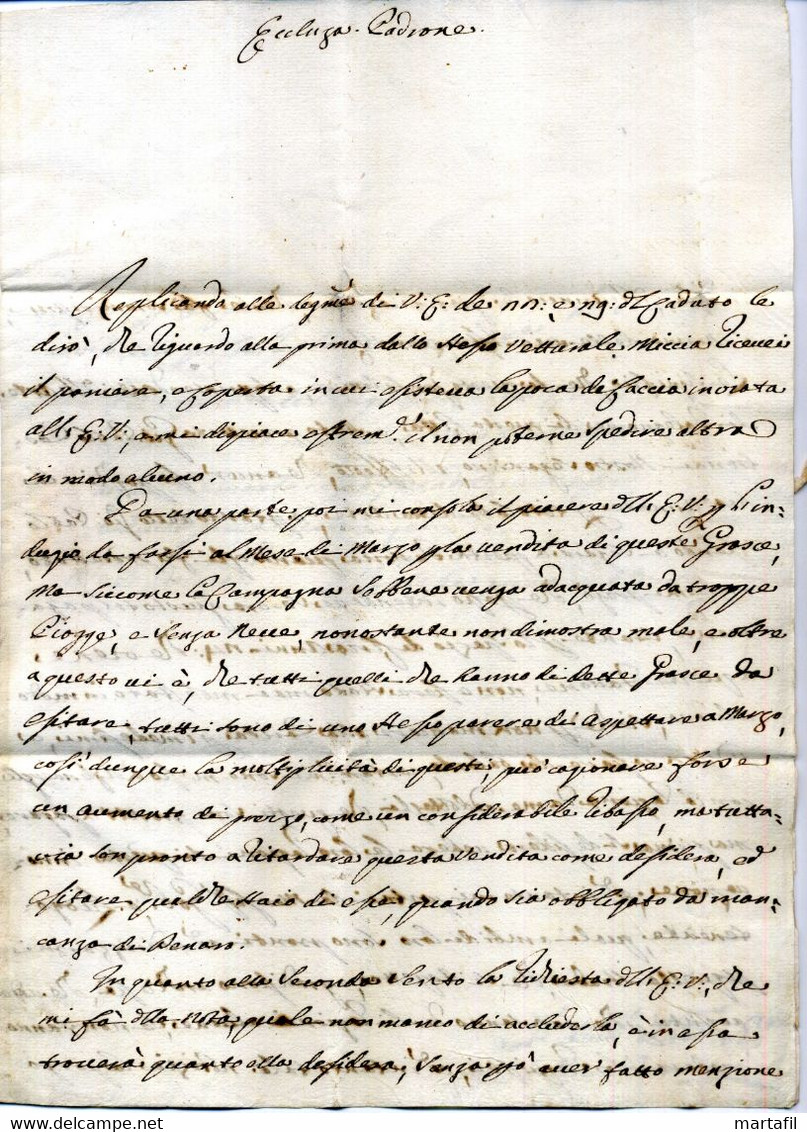 Eccluza. Padrone.
Replicando alle degme di V: E: de nn: e ng: dl Caduto le
dirò, che riguardo alla prima dallo stesso Vetturale Miccia ricevei
il paniere, e coperta in cui esisteva la poca de Caccia inviata
all E: V:, e mi dispiace estrem.e il non poterne spedire altra
in modo alcuno.
Da una parte poi mi consola il piacere dll E: V: p l'in-
dugio da farsi al Mese di Marzo p la vendita di queste Grasce,
ma siccome la Campagna sebbene venga adacquata da troppe
Piogge, e senza Neve, nonostante non dimostra male, e oltre
a questo vi è, che tutti quelli che hanno di dette Grasce da
esitare, tutti sono di uno stesso parere di aspettare a Marzo,
così dunque la moltiplicità di questi, può cagionare forse
un aumento di prezzo, come un considerabile ribasso, ma tutta-
via son pronto a ritardare questa vendita come desidera, ed
esitare qualche staio di esse, quando sia obbligato da man-
canza di Denaro.
In quanto alla seconda sento la richiesta dll E: V:, che
mi fà dlla Nota quale non manco di accluderla, è in essa
troverà quanto ella desidera, senza pò aver fatto menzione
martafil